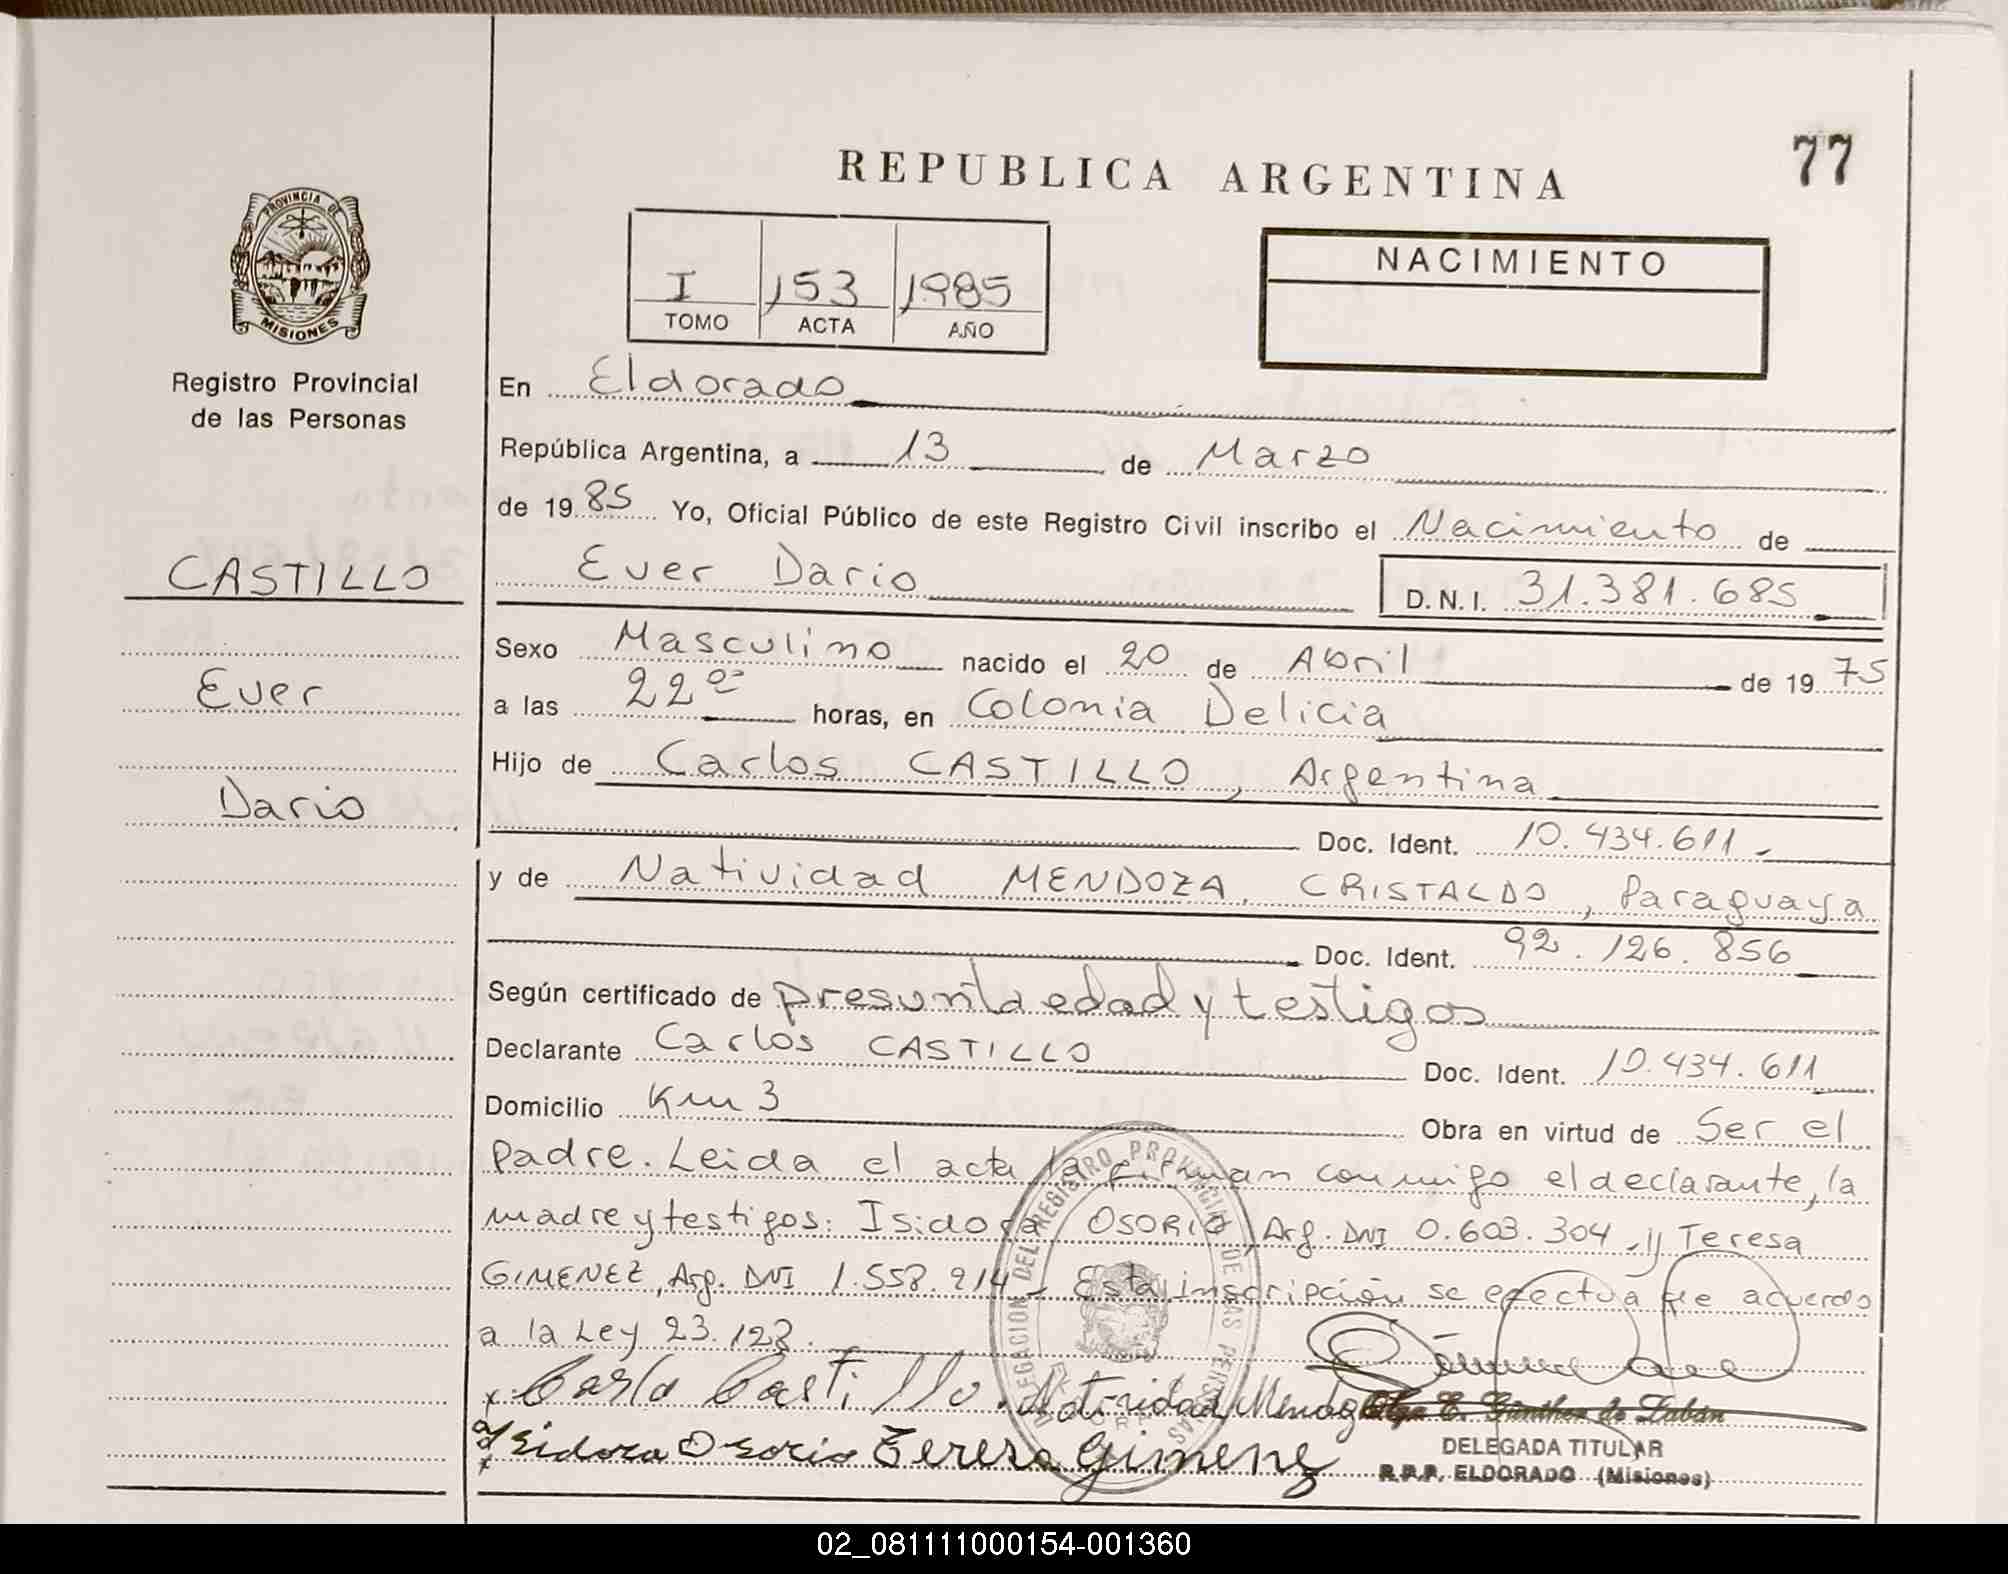 77
REPUBLICA ARGENTINA
PROVINCIA DE
MISIONES
Registro Provincial
de las Personas
I 153 1985
TOMO ACTA AÑO
NACIMIENTO
CASTILLO
Ever
Dario
En Eldorado
República Argentina, a 13 de Marzo
de 1985 Yo, Oficial Público de este Registro Civil inscribo el Nacimiento de
Ever Dario D.N.I. 31.381.685
Sexo Masculino nacido el 20 de Abril de 1975
a las 22 00 horas, en Colonia Delicia
Hijo de Carlos CASTILLO, Argentina
Doc. Ident. 10.434.611.-
y de Natividad MENDOZA CRISTALDO, Paraguaya
Doc. Ident. 92.126.856
Según certificado de presunta edad y testigos
Declarante Carlos CASTILLO Doc. Ident. 10.434.611
Domicilio Km 3 Obra en virtud de Ser el
padre. Leida el acta la firman conmigo el declarante, la
madre y testigos: Isidora OSORIO, Arg. DNI 0.603.304 .y Teresa
GIMENEZ, Arg. DNI 1.558.214 - Esta inscripción se efectua de acuerdo
a la Ley 23.123.
x Carlo Casti llo . Natividad Mendoz
Isidora Osorio Teresa Gimenz
Olga E. Günther de Labán
DELEGADA TITULAR
R.P.P. ELDORADO (Misiones)
DELEGACION DEL REGISTRO PROVINCIAL DE LAS PERSONAS
02_081111000154-001360